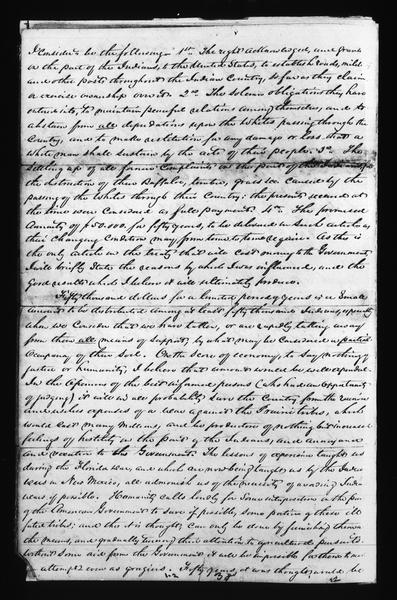 I consider to be the following — 1st The right acknowledged, and granted
on the part of the Indians, to the United States, to establish roads, military
and other posts throughout the Indian Country, so far as they claim
or exercise ownership over it. 2nd The solemn obligations they have
entered into, to maintain peaceful relations among themselves, and to
abstain from all depredations upon the Whites passing through the
Country, and to make restitution for any damage or loss that a
White man shall sustain by the acts of their people. 3rd The
settling up of all former complaints on the part of the Indians for
the destruction of their Buffalo, timber, grass &c caused by the
passing of the Whites through their Country; the presents received at
the time were considered as full payment. 4th The promised
Annuity of $50.000. for fifty years, to be delivered in such articles as
their changing condition may from time to time require. As this is
the only article in the treaty that will cost money to the Government
I will briefly state the reasons by which I was influenced, and the
good results which I believe it will ultimately produce.
Fifty thousand dollars for a limited period of years is a small
amount to be distributed among at least fifty thousand Indians, especially
when we consider that we have taken, or are rapidly taking away
from them all means of support, by what may be considered a partial
occupancy of their soil. On the score of economy, to say nothing of
justice or humanity, I believe that amount would be well expended.
In the opinions of the best informed persons (who had an opportunity
of judging) it will in all probability save the country from the ruinous
and useless expenses of a war against the Prairie tribes, which
would cost many Millions, and be productive of nothing but increased
feelings of hostility on the part of the Indians, and annoyance
and vexation to the Government. The lessons of experience taught us
during the Florida war, and which are now being taught us by the Indian
wars in New Mexico, all admonish us of the necessity of avoiding Indian
wars if possible. Humanity calls loudly for some interposition on the part
of the American Government to save if possible, some portion of these ill
fated tribes; and this it is thought can only be done by furnishing them
the means, and gradually turning their attention to agricultural pursuits.
Without some aid from the Government it will be impossible for them to
attempt even as graziers. Fifty years, it was thought would be